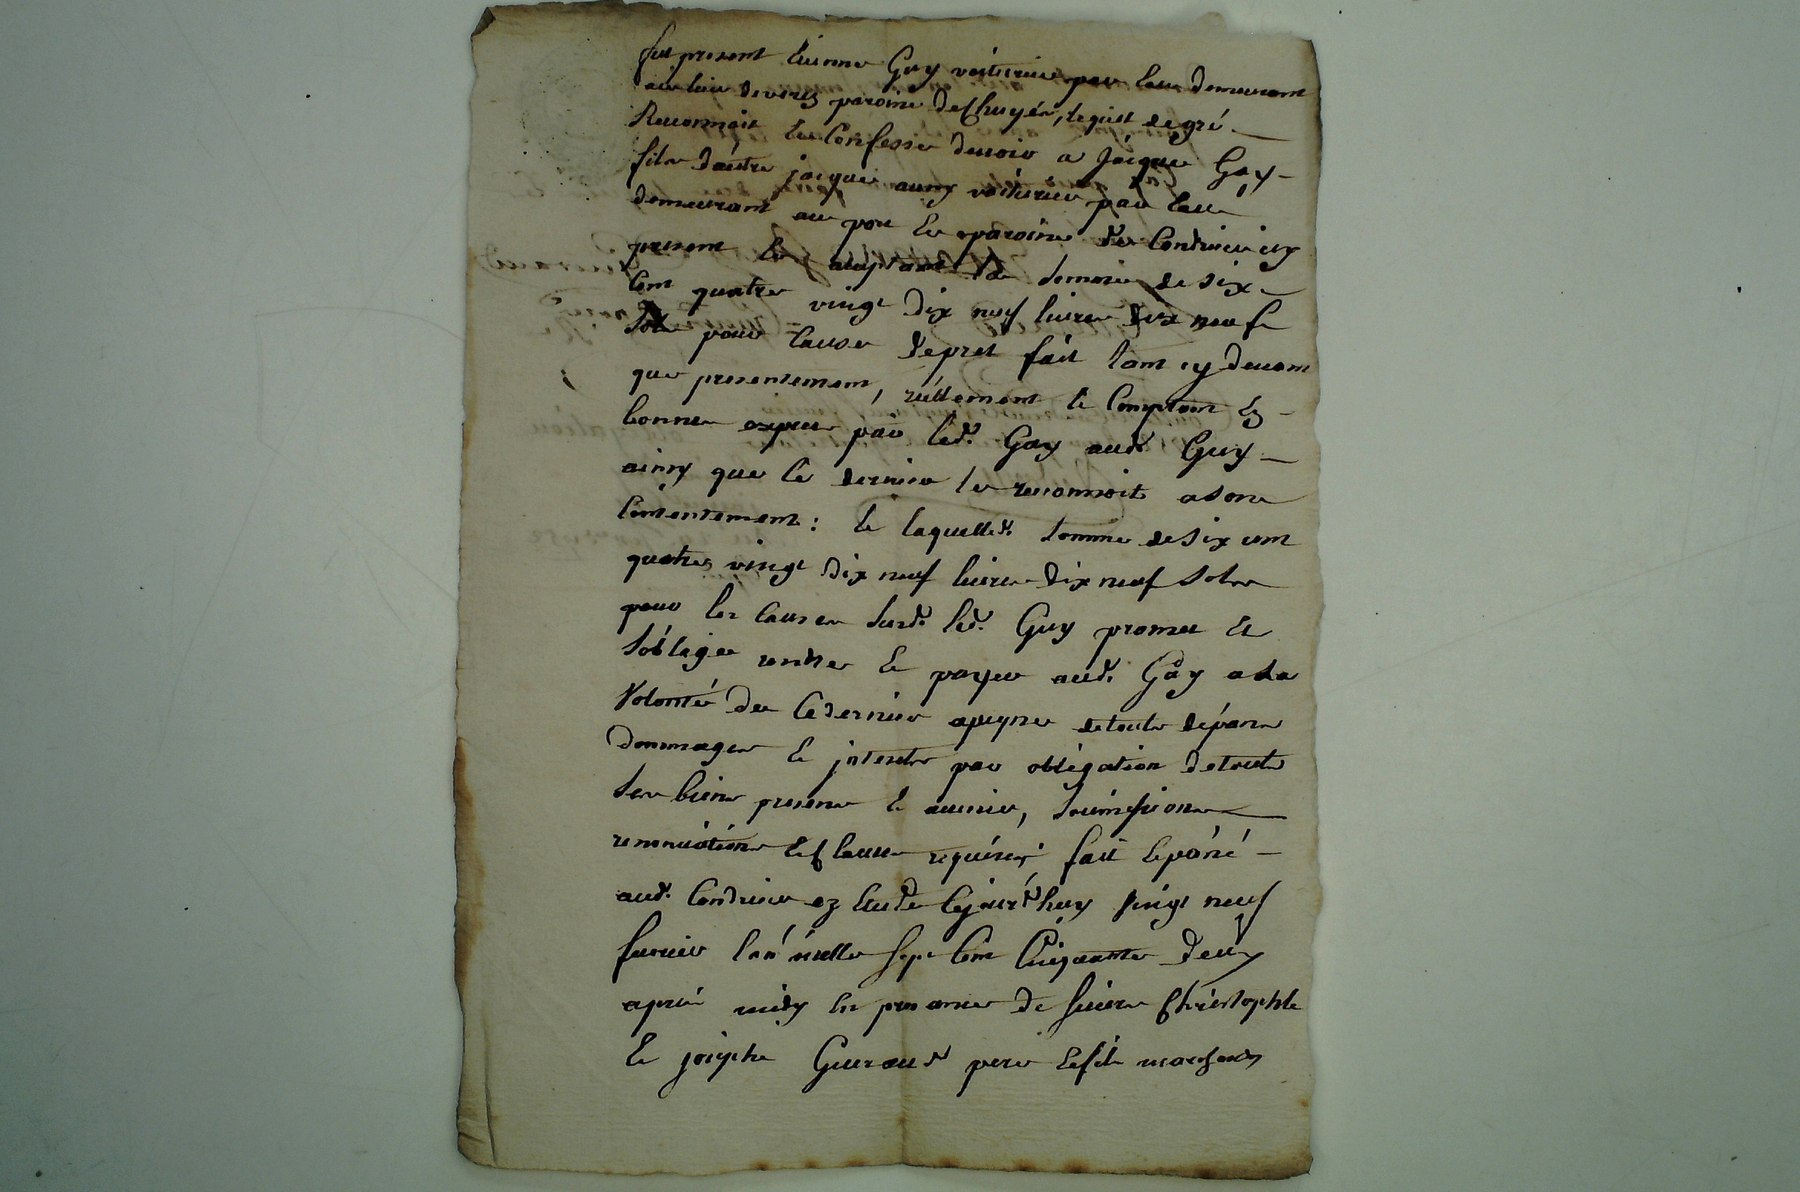 fut present Etienne Guy voiturier par Eau demeurant
au lieu de verez paroisse de Chuyér, lequel de gré
Reconnoit Et Confesse devoir a Jacque Gay
fils d'autre jacque aussy voiturier par Eau
demeurant au port Et paroisse de Condrieu icy
present Et acceptant la somme de six
Cent quatre vingt dix neuf livres dix neuf
sols pour Cause de pret fait tant cy devant
que presentement, réellement Et Comptant En
bonnes espece par led. Gay aud. Guy
ainsy que Ce dernier le reconnoit a son
Contentement : Et laquelle d. somme de six cent
quatre vingt dix neuf livres dix neuf sols
pour les Causes susd. led. Guy promet Et
s'oblige rendre Et payer aud. Gay a la
Volonté de Ce dernier a peyne de touts dépans
dommages Et interets par obligation de touts
ses biens presens Et avenir, soumissions
renonciations Et Clauses requises fait Et passé
aud. Condrieu ez Etude Cejourd'huy vingt neuf
fevrier l'an mille sept Cent Cinquante deux
aprés midy En presance de sieurs Christophle
Et josephe Gueraud pere Et fils marchands